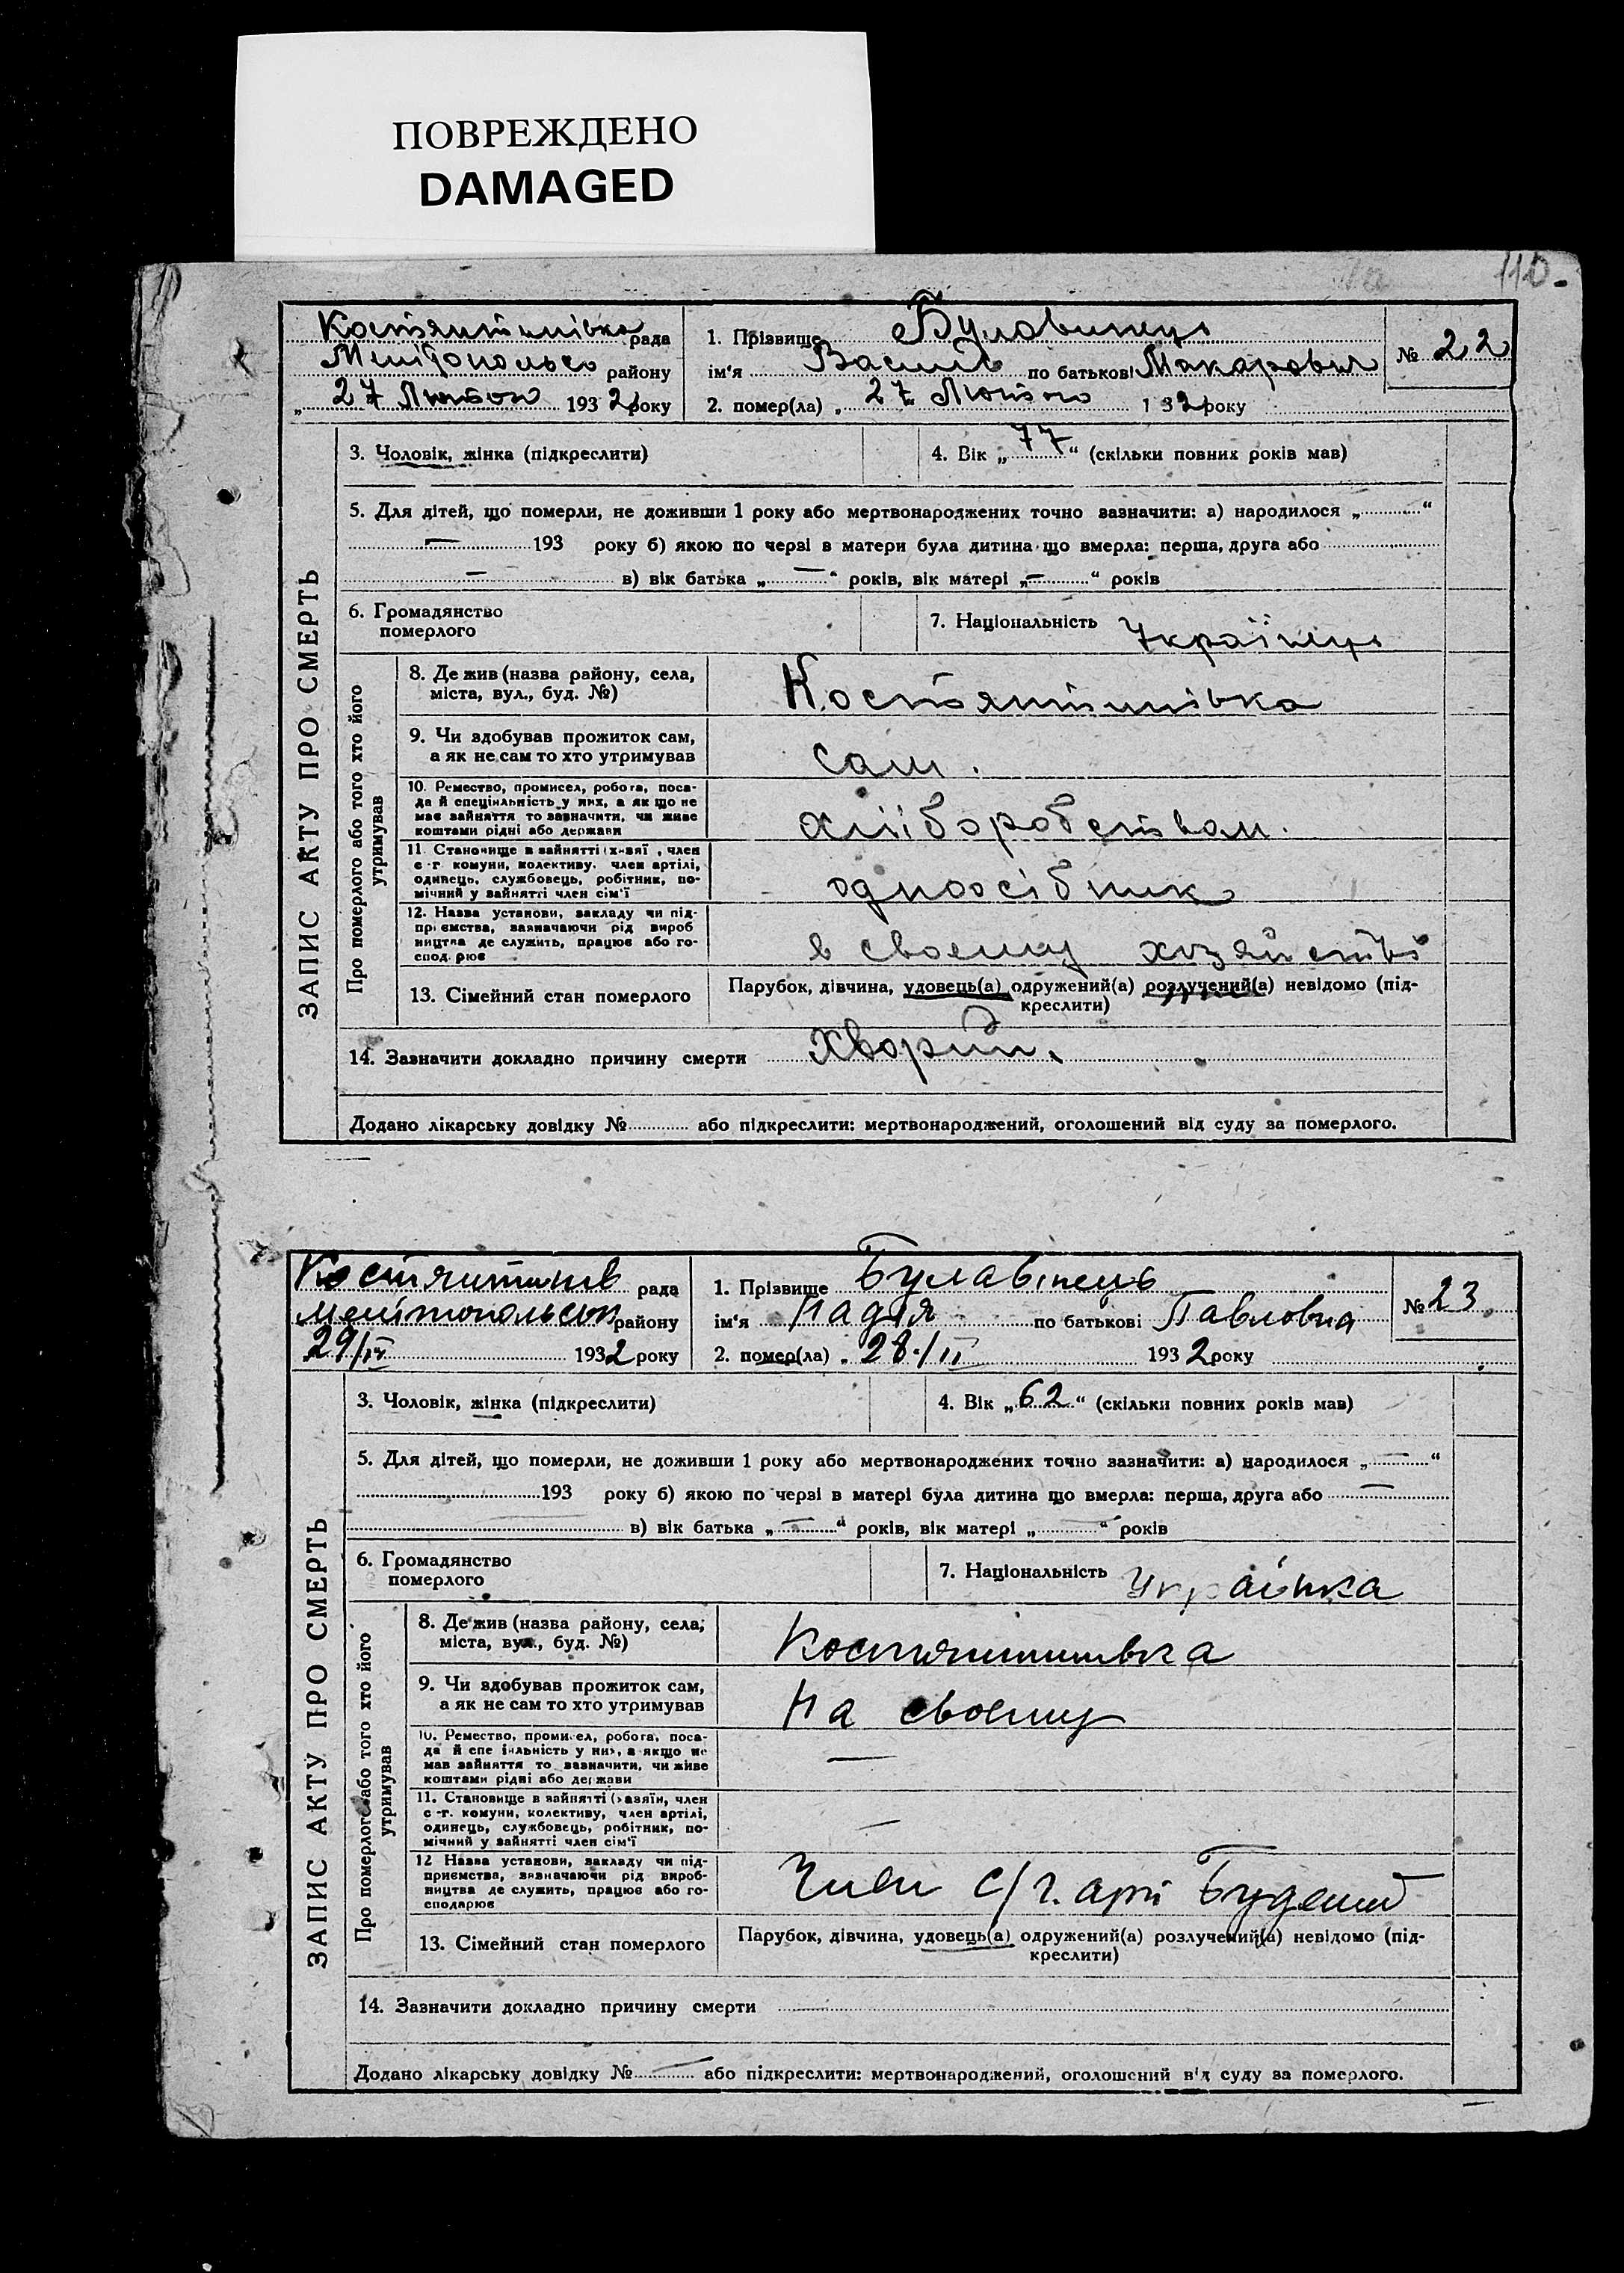 ПОВРЕЖДЕНО
DAMAGED
110.
Костянтинівка рада
Мелітопольсо району
„ 27 Лютого 1932 року
1. Прізвище Буловинець
ім'я Василь по батькові Макарович
№ 22
2. помер(ла) „ 27 Лютого 1 32 року
ЗАПИС АКТУ ПРО СМЕРТЬ
3. Чоловік, жінка (підкреслити)
4. Вік „ 77 “ (скільки повних років мав)
5. Для дітей, що померли, не доживши 1 року або мертвонароджених точно зазначити: а) народилося „ “
— 193 року б) якою по черзі в матери була дитина що вмерла: перша, друга або
— в) вік батька „ — “ років, вік матері „ — “ років
6. Громадянство
померлого
7. Національність Українець
Про померлого або того хто його
утримував
8. Де жив (назва району, села,
міста, вул., буд. №)
Костянтинівка
9. Чи здобував прожиток сам,
а як не сам то хто утримував
сам.
10. Ремество, промисел, робота, поса-
да й спеціяльність у них, а як що не
має зайняття то зазначити, чи живе
коштами рідні або держави
хліборобством.
11. Становище в зайнятті (хазяї, член
с-г. комуни, колективу, член артілі,
одинець, службовець, робітник, по-
мічний у зайнятті член сім'ї
одноосібник
12. Назва установи, закладу чи під-
приємства, зазначаючи рід вироб
ництва де служить, працює або го-
спод. рює
в своему хозяйстві
13. Сімейний стан померлого
Парубок, дівчина, удовець(а) одружений(а) розлучений(а) невідомо (під-
креслити)
14. Зазначити докладно причину смерти хворий.
Додано лікарську довідку № або підкреслити: мертвонароджений, оголошений від суду за померлого.
Костянтинів рада
Мелітопольськ району
29/IV 1932 року
1. Прізвище Булавінець
ім'я Надія по батькові Павловна
№ 23
2. помер(ла) „ 28./II 1932 року
ЗАПИС АКТУ ПРО СМЕРТЬ
3. Чоловік, жінка (підкреслити)
4. Вік „ 62 “ (скільки повних років мав)
5. Для дітей, що померли, не доживши 1 року або мертвонароджених точно зазначити: а) народилося „ — “
193 року б) якою по черзі в матері була дитина що вмерла: перша, друга або —
в) вік батька „ — “ років, вік матері „ — “ років
6. Громадянство
померлого
7. Національність Українка
Про померлого або того хто його
утримував
8. Де жив (назва району, села,
міста, вул., буд. №)
Костянтинівка
9. Чи здобував прожиток сам,
а як не сам то хто утримував
На своему
10. Ремество, промисел, робота, поса-
да й спеціяльність у них, а якщо не
мав зайняття то зазначити, чи живе
коштами рідні або держави
—
11. Становище в зайнятті (хазяїн, член
с-г. комуни, колективу, член артілі,
одинець, службовець, робітник, по-
мічний у зайнятті член сім'ї
—
12 Назва установи, закладу чи під-
приємства, зазначаючи рід вироб-
ництва де служить, працює або го-
сподарює
Член с/г. арт Будений
13. Сімейний стан померлого
Парубок, дівчина, удовець(а) одружений(а) розлучений(а) невідомо (під-
креслити)
14. Зазначити докладно причину смерти
Додано лікарську довідку № — або підкреслити: мертвонароджений, оголошений від суду за померлого.